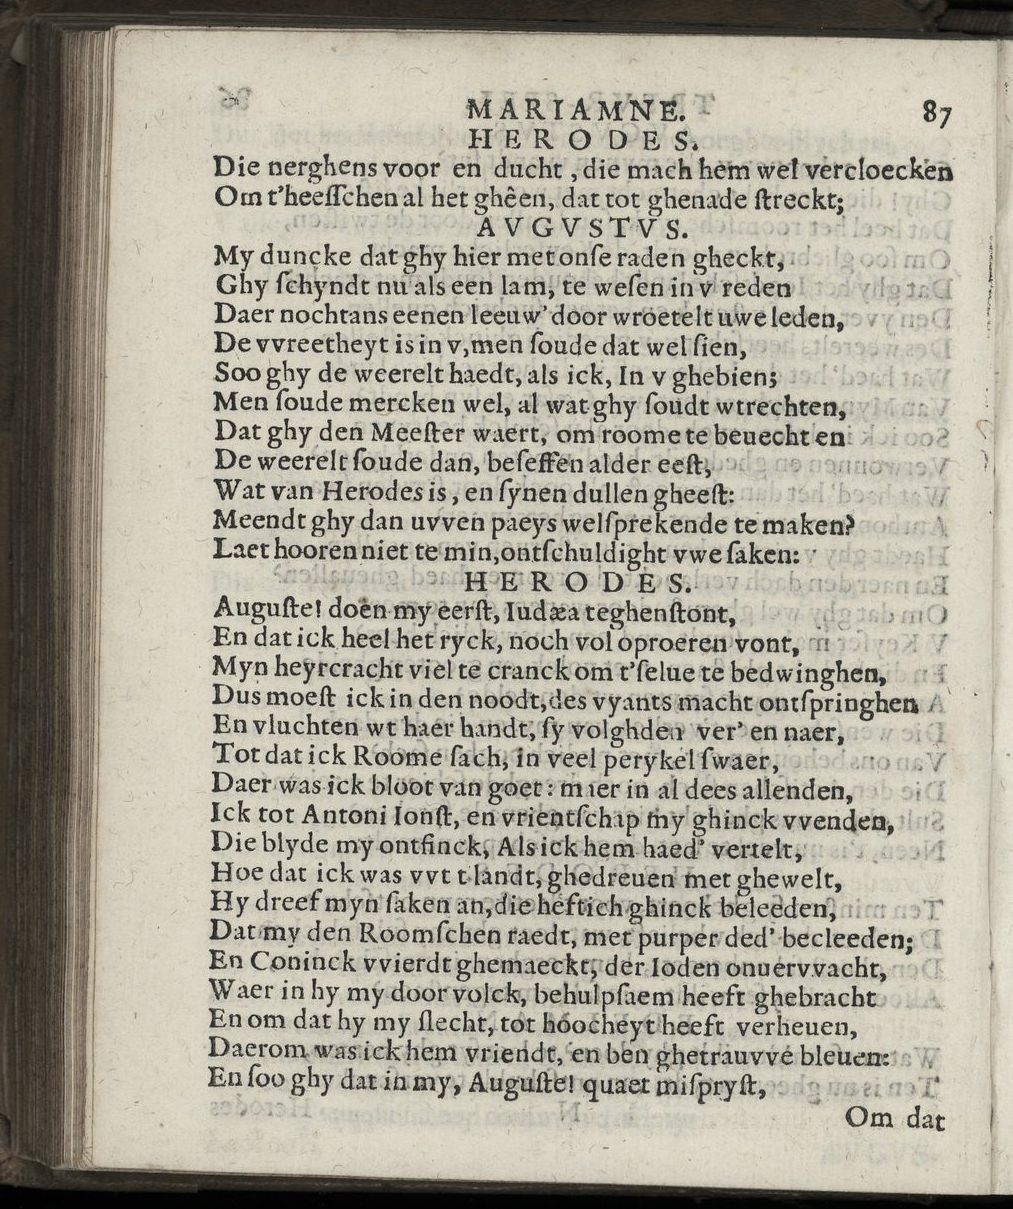 MARIAMNE. 87
HERODES.
Die nerghens voor en ducht, die mach hem wel vercloecken
Om t'heeſſchen al het ghêen, dat tot ghenade ſtreckt;
AVGVSTVS.
My duncke dat ghy hier met onſe raden gheckt,
Ghy ſchyndt nu als een lam, te weſen in v reden
Daer nochtans eenen leeuw' door wroetelt uwe leden,
De vvreetheyt is in v, men ſoude dat wel ſien,
Soo ghy de weerelt haedt, als ick, In v ghebien;
Men ſoude mercken wel, al wat ghy ſoudt wtrechten,
Dat ghy den Meeſter waert, om roome te beuechten
De weerelt ſoude dan, beſeffen alder eeſt,
Wat van Herodes is, en ſynen dullen gheeſt:
Meendt ghy dan uvven paeys welſprekende te maken?
Laet hooren niet te min, ontſchuldight vwe ſaken:
HERODES.
Auguſte! doen my eerſt, Iudæa teghenſtont,
En dat ick heel het ryck, noch vol oproeren vont,
Myn heyrcracht viel te cranck om t'ſelue te bedwinghen,
Dus moeſt ick in den noodt, des vyants macht ontſpringhen
En vluchten wt haer handt, ſy volghden ver' en naer,
Tot dat ick Roome ſach, in veel perykel ſwaer,
Daer was ick bloot van goet: maer in al dees allenden,
Ick tot Antoni Ionſt, en vrientſchap my ghinck vvenden,
Die blyde my ontfinck, Als ick hem haed' vertelt,
Hoe dat ick was vvt t landt, ghedreuen met ghewelt,
Hy dreef myn ſaken an, die heftich ghinck beleeden,
Dat my den Roomſchen raedt, met purper ded' becleeden;
En Coninck vvierdt ghemaeckt, der Ioden onuervvacht,
Waer in hy my door volck, behulpſaem heeft ghebracht
En om dat hy my ſlecht, tot hoocheyt heeft verheuen,
Daerom was ick hem vriendt, en ben ghetrauvve bleuen:
En ſoo ghy dat in my, Auguſte! quaet miſpryſt,
Om dat